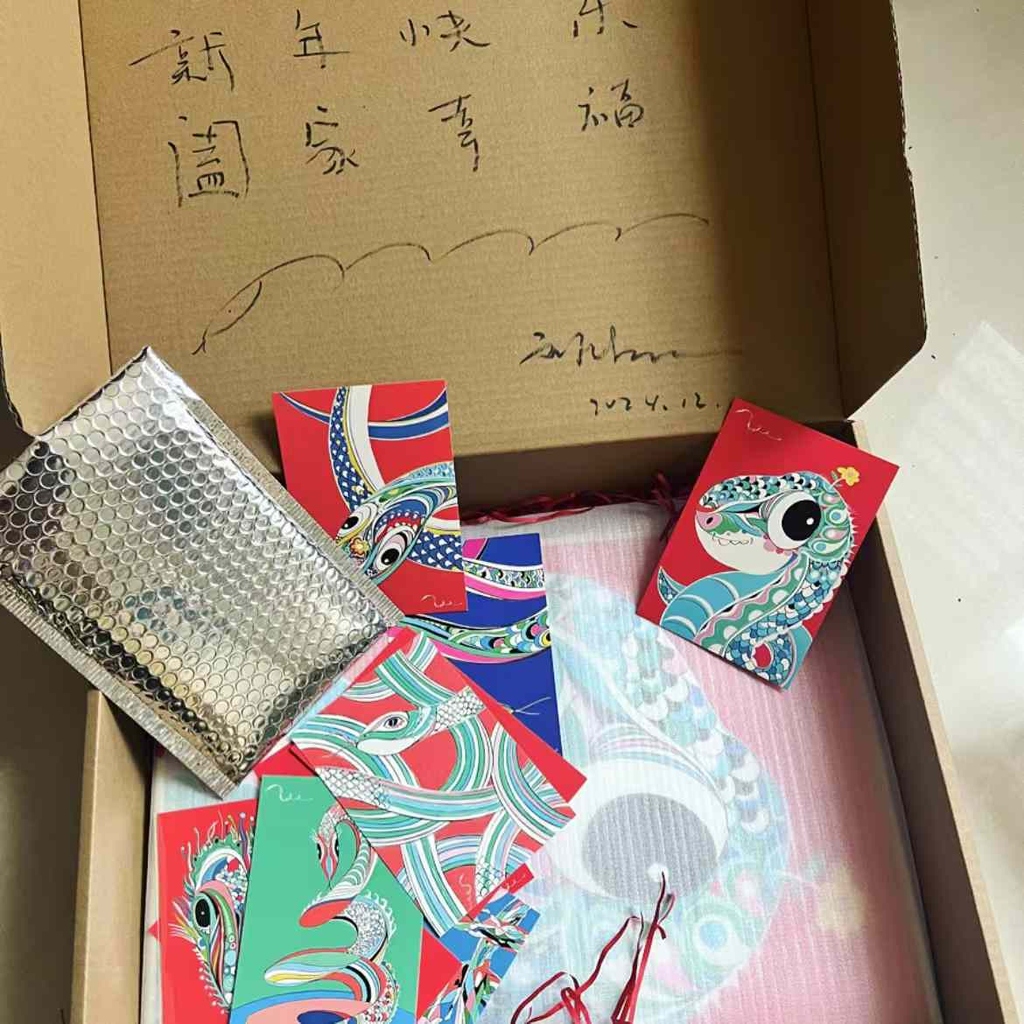 新年快乐
阖家幸福
2024.12.